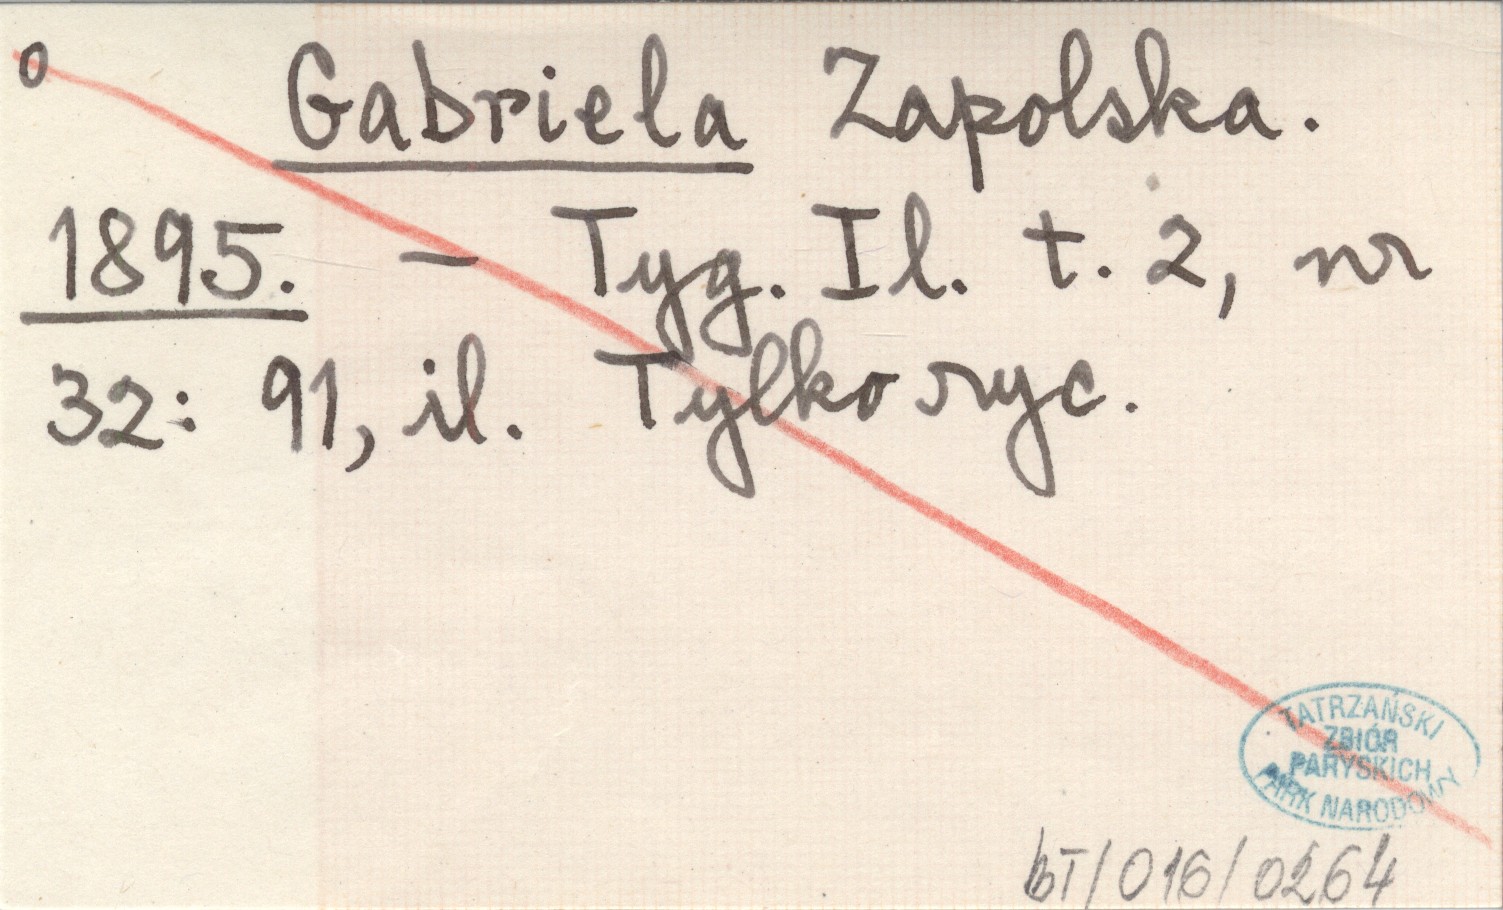 o Gabriela Zapolska.
1895. – Tyg. Il. t. 2, nr
32: 91, il. Tylko ryc.
TATRZAŃSKI
ZBIÓR
PARYSKICH
PARK NARODOWY
bT/016/0264